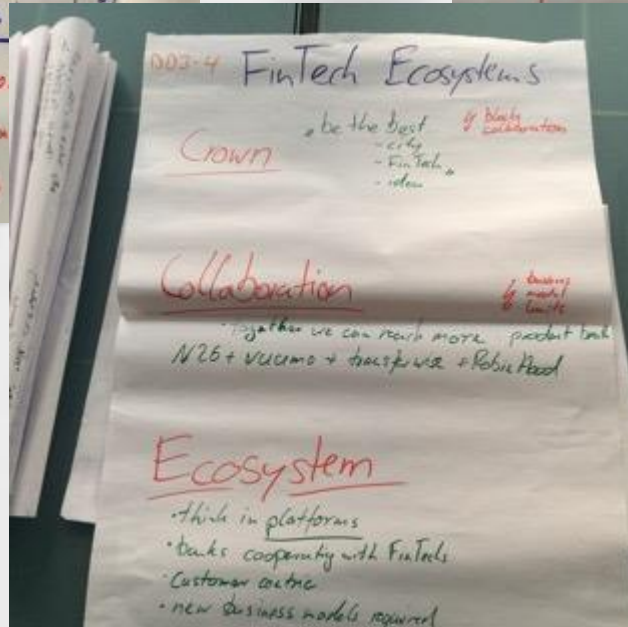 003-4 FinTech Ecosystems
Crown
„be the best
- city
- FinTech"
- idea
blocks
collaboration
Collaboration
business
model
limits
Together we can reach more product
N26 + vuumo + transferwise + Robin Hood
Ecosystem
• think in platforms
• banks cooperating with FinTechs
• Customer centric
• new business models required